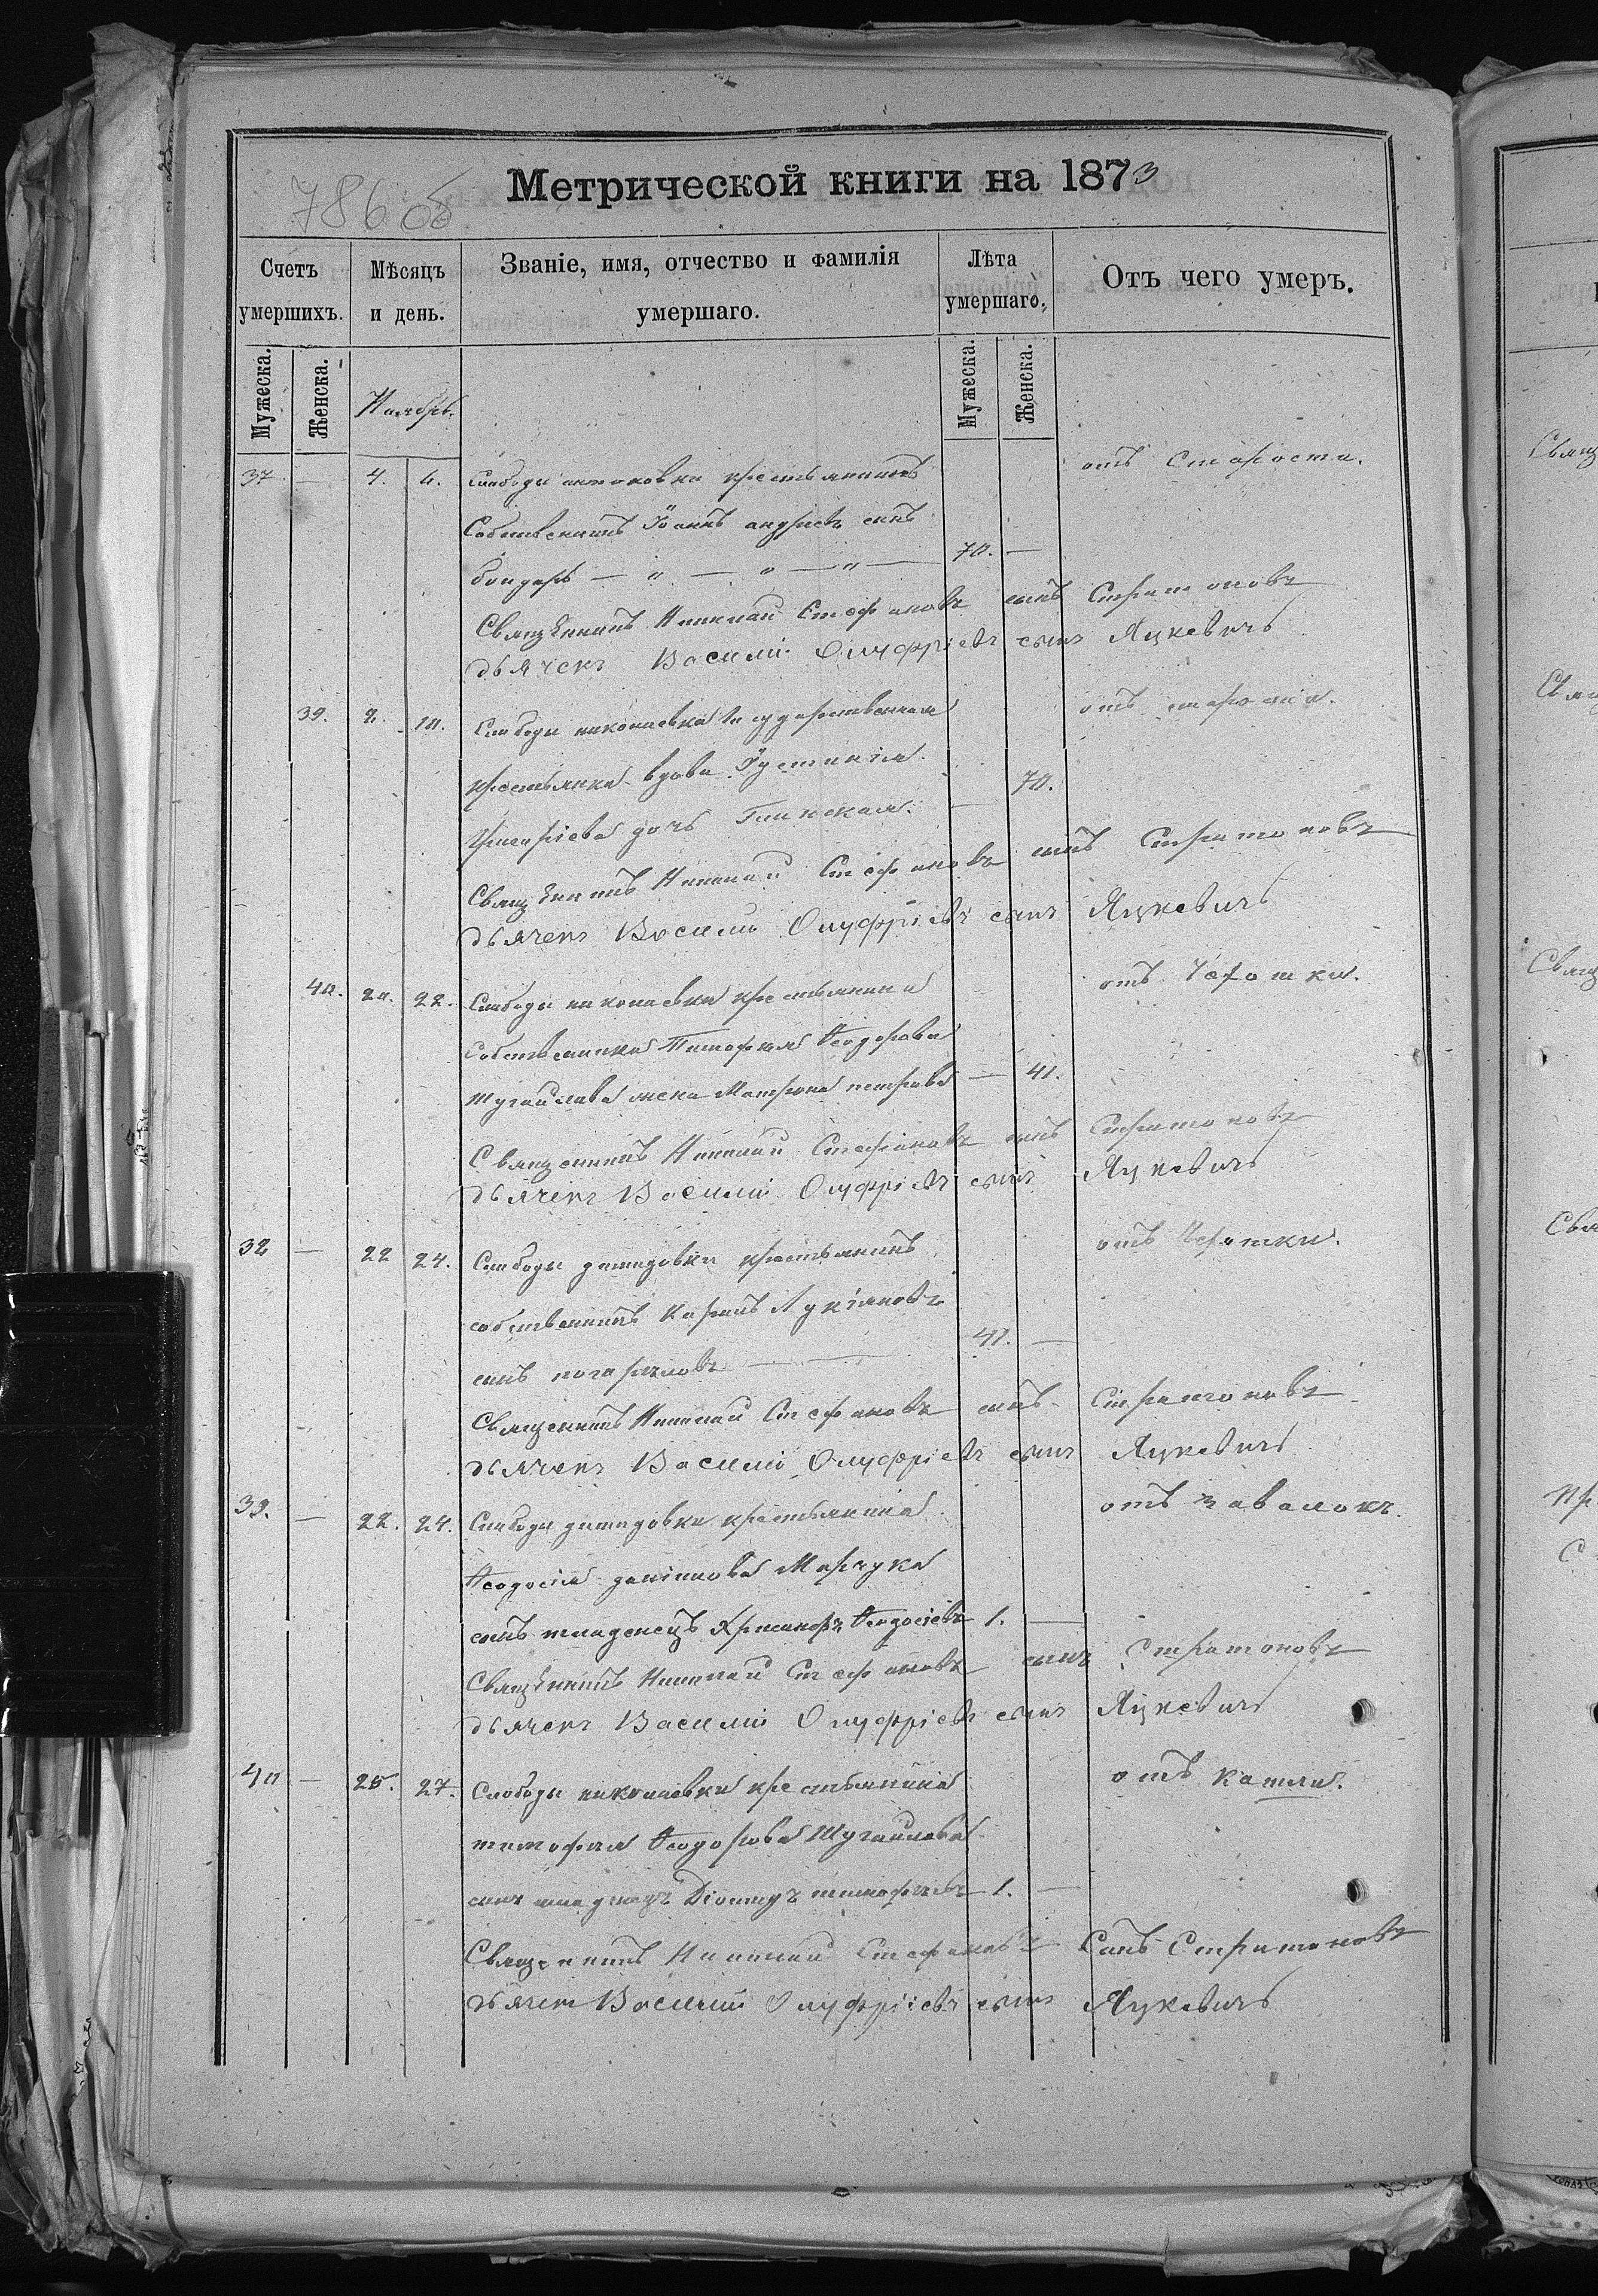 Метрической книги на 1873
786 об
Счетъ умершихъ. Мѣсяцъ и день. Званіе, имя, отчество и фамилія умершаго. Лѣта умершаго. Отъ чего умеръ.
Мужеска. Женска. Ноябрь. Мужеска. Женска.
37 — 4. 6. Слободы крестьянинъ отъ Старости.
Собственникъ Іоаннъ андреевъ сынъ
бондарь — " — " — " — 70. —
Священникъ Николай Стефановъ сынъ Стратоновъ
дьячекъ Василій Онуфріевъ сынъ Яцкевичъ
39. 2. 10. Слободы николаевки Государственная отъ старости.
крестьянка вдова Іустинія
Григоріева дочь Глинская. — 70.
Священникъ Николай Стефановъ сынъ Стратоновъ
дьячекъ Василій Онуфріевъ сынъ Яцкевичъ
40. 20. 22. Слободы николаевки крестьянина отъ Чахотки.
Собственника Тимофея Ѳеодорова
Шугайлова жена Матрона петрова — 41.
Священникъ Николай Стефановъ сынъ Стратоновъ
дьячекъ Василій Онуфріевъ сынъ Яцкевичъ
32 — 22 24. Слободы демидовки крестьянинъ отъ Чахотки.
собственникъ Карпъ Лукіяновъ
сынъ — 41. —
Священникъ Николай Стефановъ сынъ Стратоновъ
дьячекъ Василій Онуфріевъ сынъ Яцкевичъ
39. — 22. 24. Слободы демидовки крестьянина отъ завалокъ.
Ѳеодосія даніилова Марчука
сынъ младенецъ Ѳеодосіевъ 1. —
Священникъ Николай Стефановъ сынъ Стратоновъ
дьячекъ Василій Онуфріевъ сынъ Яцкевичъ
40 — 25. 27. Слободы николаевки крестьянина отъ Кашля.
тимофея Ѳеодорова Шугайлова
сынъ младенецъ тимофеевъ 1. —
Священникъ Николай Стефановъ Сынъ Стратоновъ
дьячекъ Василій Онуфріевъ сынъ Яцкевичъ